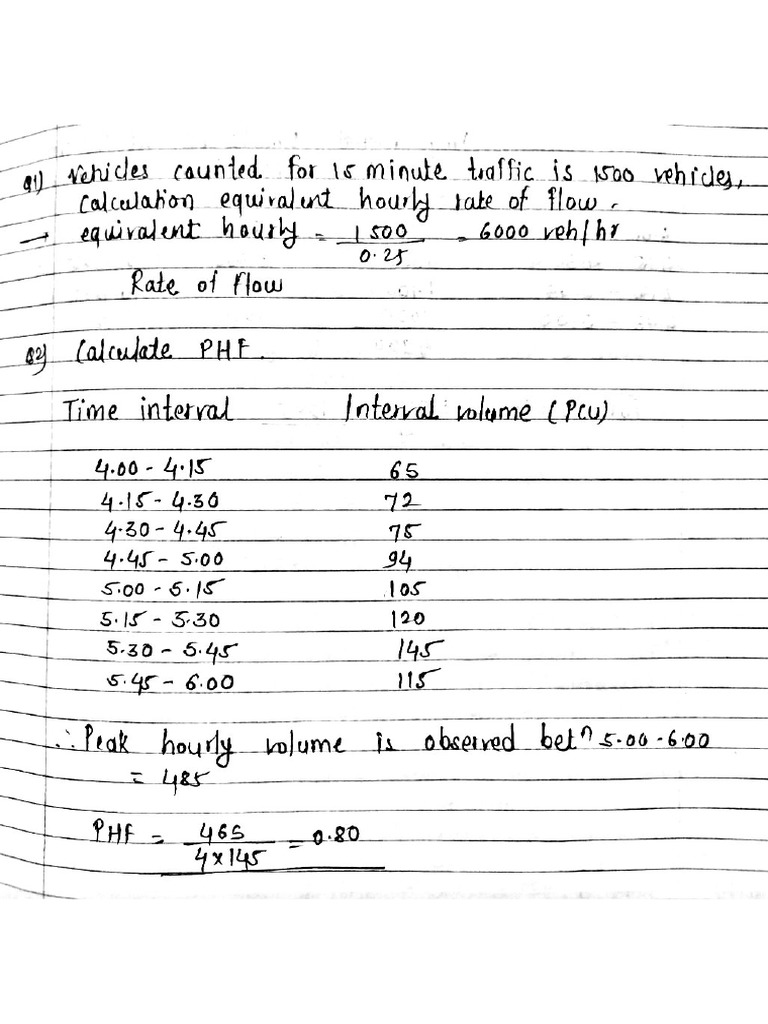 Q1) Vehicles counted for 15 minute traffic is 1500 vehicles,
Calculation equivalent hourly rate of flow.
→ equivalent hourly = 1500 / 0.25 = 6000 veh/hr
Rate of flow
Q2) Calculate PHF.
Time interval Interval volume (PCU)
4.00 - 4.15 65
4.15 - 4.30 72
4.30 - 4.45 78
4.45 - 5.00 94
5.00 - 5.15 105
5.15 - 5.30 120
5.30 - 5.45 145
5.45 - 6.00 115
∴ Peak hourly volume is observed betn 5.00 - 6.00
= 485
PHF = 465 / 4x145 = 0.80